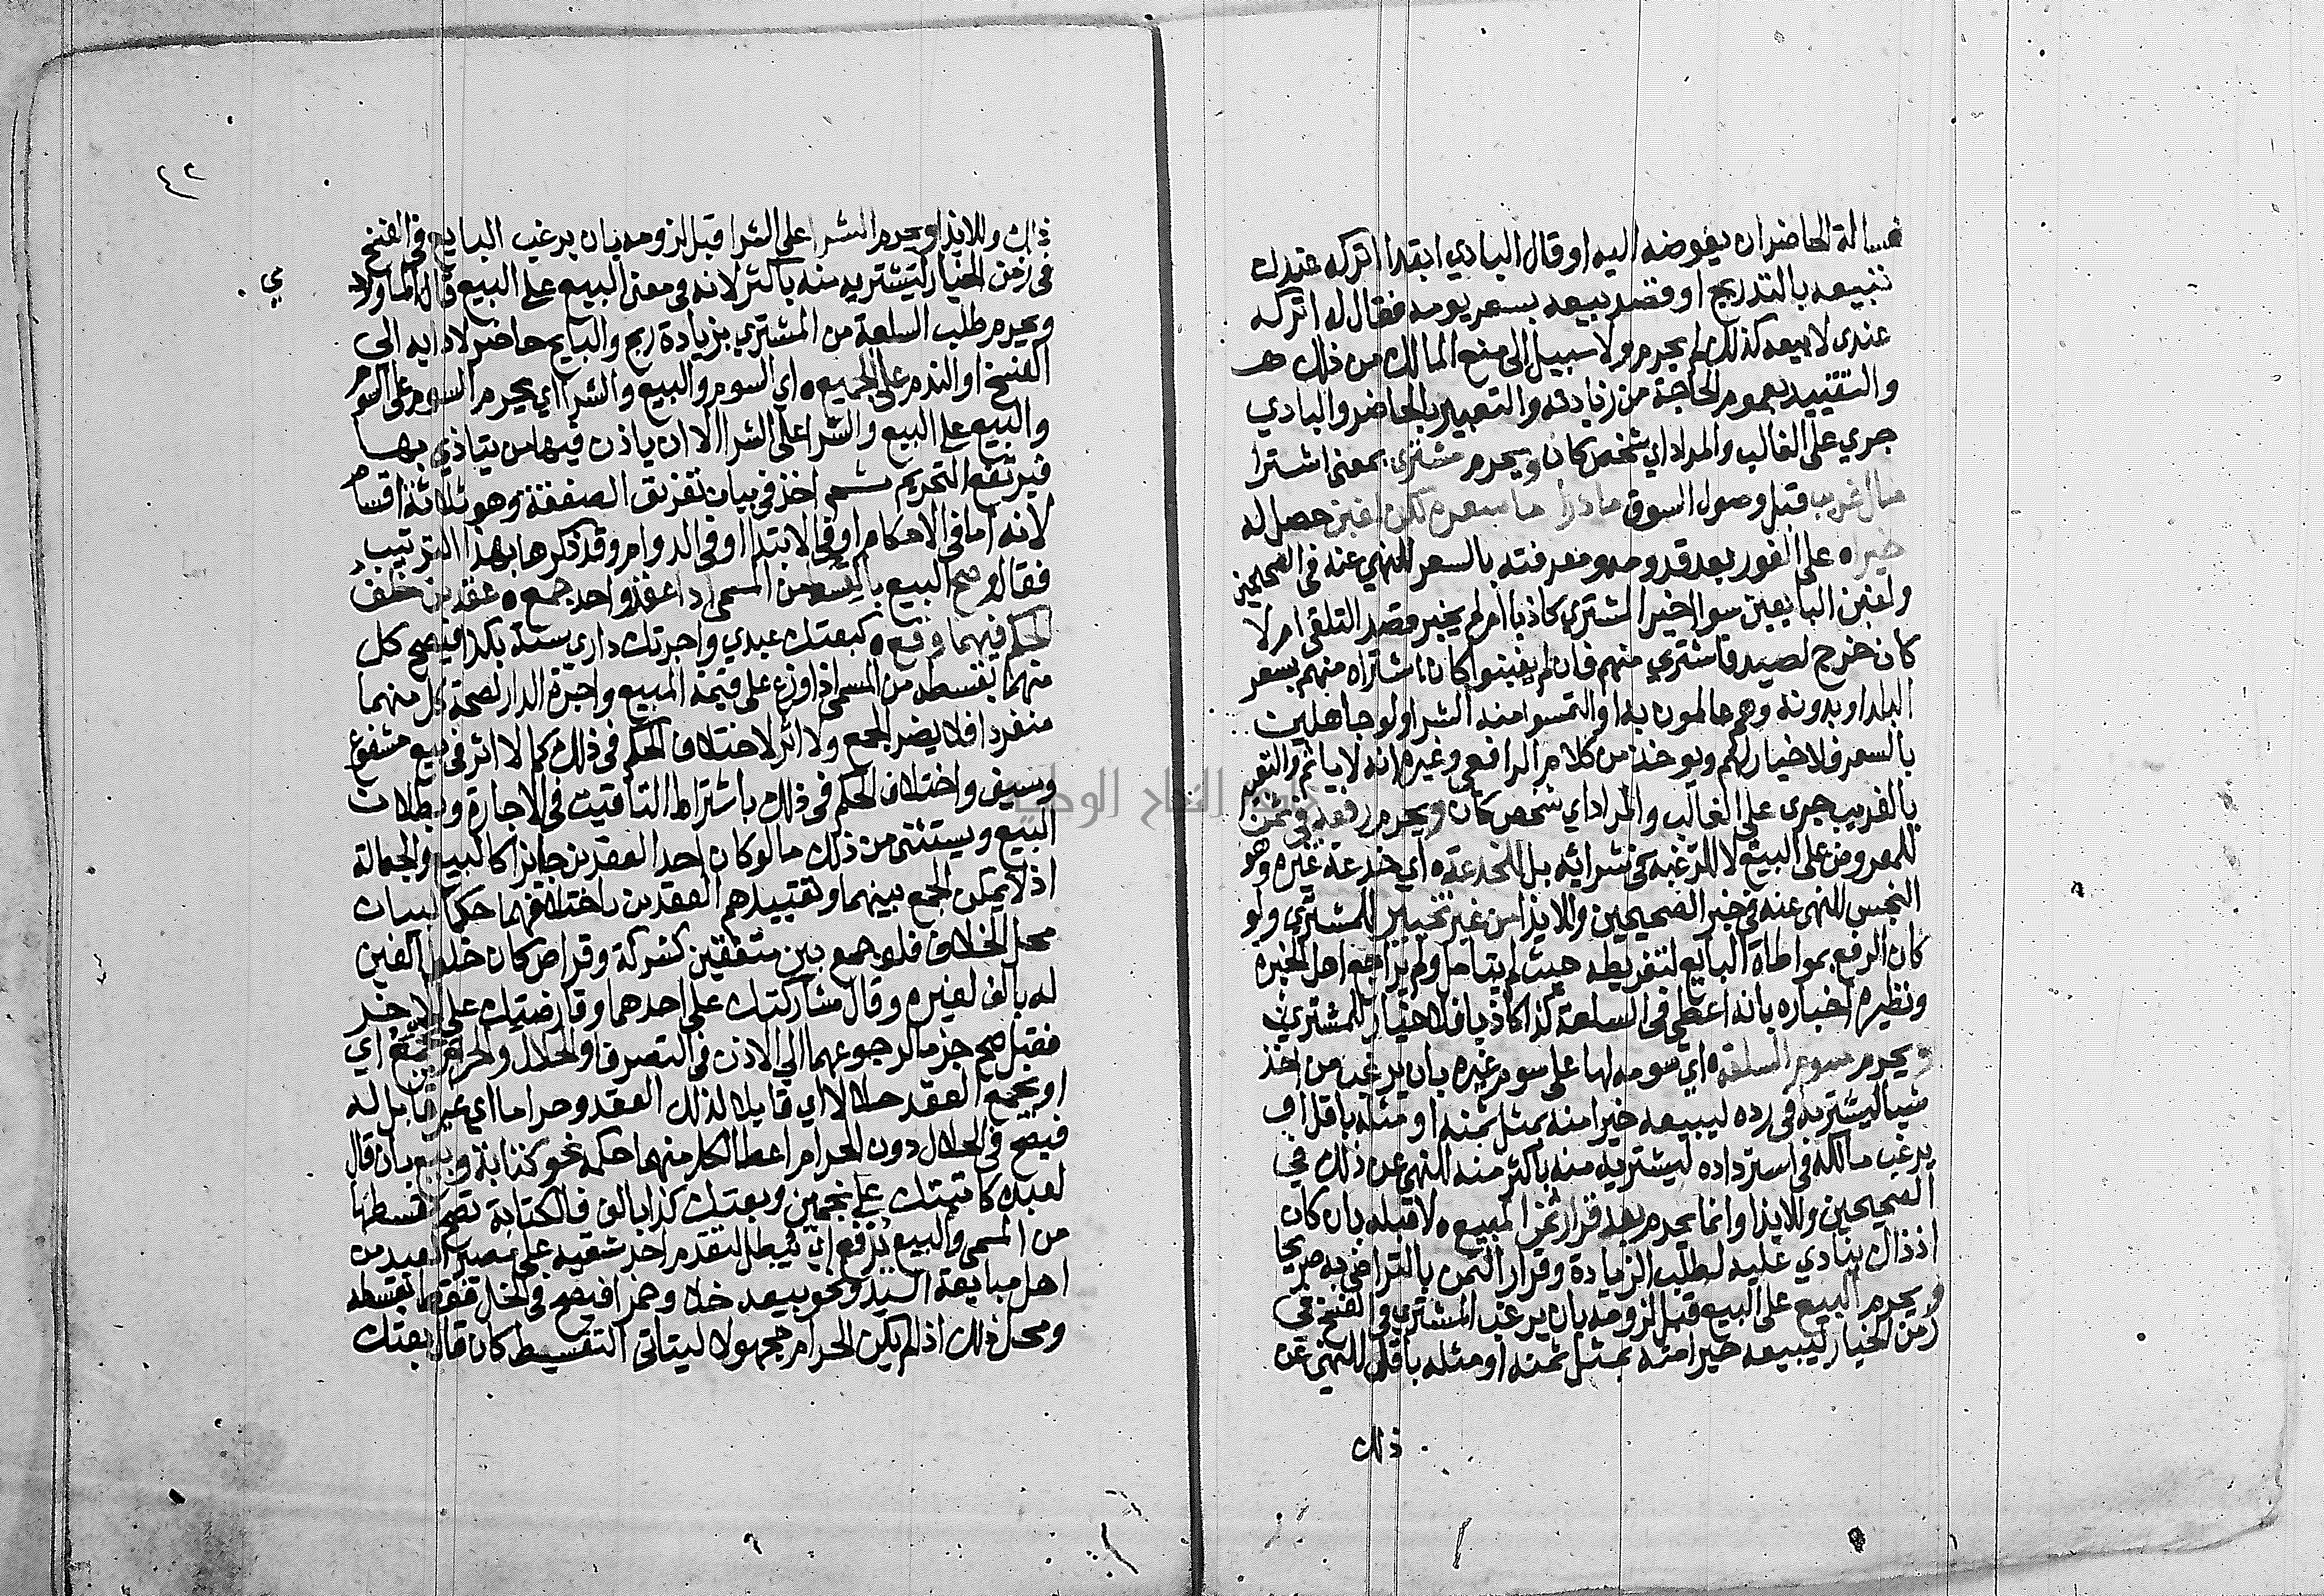 فساله الحاضر ان يفوضه اليه او قال البادي ابتدا اتركه عندك
نبيعه بالتدريج او قصد بيعه بسعر يومه فقال له اتركه
عندي لابيعه كذلك لم يحرم ولا سبيل الى منع المالك من ذلك
والتقييد بعموم الحاجة من زيادته والتعبير بالحاضر والبادي
جري على الغالب والمراد اي شخص كان ويحرم مشتري بمعنى اشترا
مال غريب قبل وصول السوق ما درا ما سعره لكن لغبن حصل له
خيراه على الفور بعد قدومه ومعرفته بالسعر للنهي عنه في الصحيحين
ولغبن البايعين سوا اخبر المشتري كاذبا ام لم يخبر وقصد التلقي ام لا
كان خرج لصيد فاشتري منهم فان لم يغبنوا كان اشتراه منهم بسعر
البلد او بدونه وهم عالمون به او التمسوا منه الشرا ولو جاهلين
بالسعر فلا خيار لهم ويوخذ من كلام الرافعي وغيره انه لا ياثم والتعبير
بالغريب جري على الغالب والمراد اي شخص كان ويحرم رفعه في ثمن
للمعروض على البيع لا للرغبة في شرائه بل للخدعة اي خدعة غيره وهو
النجس للنهي عنه في خبر الصحيحين وللايذا من غير تخيير للمشتري ولو
كان الرفع بمواطاة البايع لتفريطه حيث لم يتامل ولم يراجع اهل الخبره
ونظيره اخباره بانه اعطي في السلعة كذا كاذبا فلا خيار للمشتري
ويحرم سوم السلعة اي سومه لها على سوم غيره بان يرغب من اخذ
شيا ليشتريه في رده ليبيعه خيرا منه بمثل ثمنه او مثله باقل او
يرغب مالكه في استرداده ليشتريه منه باكثر منه للنهي عن ذلك في
الصحيحين وللايذا وانما يحرم بعد قرار ثمن المبيع لا قبله بان كان
اذ ذاك ينادي عليه لطلب الزيادة وقرار الثمن بالتراضي به صريحا
ويحرم البيع على البيع قبل لزومه بان يرغب المشتري في الفسخ في
زمن الخيار ليبيعه خيرا منه بمثل ثمنه او مثله باقل للنهي عن
ذلك
٤٢
ذلك وللايذا ويحرم الشرا على الشرا قبل لزومه بان يرغب البايع في الفسخ
في زمن الخيار ليشتريه منه باكثر لانه في معنى البيع على البيع قال الماوردي
ويحرم طلب السلعة من المشتري بزيادة ربح والبايع حاضر لادايه الى
الفسخ او الندم على الجميع اي السوم والبيع والشرا اي يحرم السوم على السوم
والبيع على البيع والشرا على الشرا الا ان ياذن فيها من يتاذي بها
فيرتفع التحريم ثم اخذ في بيان تفريق الصفقة وهو ثلاثة اقسام
لانه اما في الاحكام او في الابتدا او في الدوام وقد ذكرها بهذا الترتيب
فقال وصح البيع بالقسط من المسمى اذا عقد واحد جمع عقدين خلف
الحكم فيهما وقع كبعتك عبدي واجرتك داري سنة بكذا فيصح كل
منهما بقسطه من المسمى اذا وزع على قيمة المبيع واجرة الدار لصحة كل منهما
منفردا فلا يضر الجمع ولا اثر لاختلاف الحكم في ذلك كما لا اثر في بيع مشفوع
وسيف واختلاف الحكم في ذلك باشتراط التاقيت في الاجارة وبطلان
البيع ويستثنى من ذلك ما لو كان احد العقدين جايزا كالبيع والجعالة
اذ لا يمكن الجمع بينهما وتقييدهم العقدين باختلافهما حكما لبيان
محل الخلاف فلو جمع بين متفقين كشركة وقراض كان خلط الفين
له بالف لغيره وقال شاركتك على احدهما وقارضتك على الاخر
فقبل صح جزما لرجوعهما الي الاذن في التصرف او الحلال والحرم جمع اي
او يجمع العقد حلالا اي قابلا لذلك العقد وحراما اي غير قابل له
فيصح في الحلال دون الحرام اعطا لكل منهما حكمه نحو كتابة وبيع بان قال
لعبده كاتبتك على نجمين وبعتك كذا بالف فالكتابة تصح بقسطها
من المسمى والبيع يرفع اي يبطل لتقدم احد شقيه على مصير العبد من
اهل مبايعة السيد ونحو بيعه خلا وخمرا فيصح في الخل فقط بقسطه
ومحل ذلك اذ لم يكن الحرام مجهولا ليتاتى التقسيط كان قال بعتك